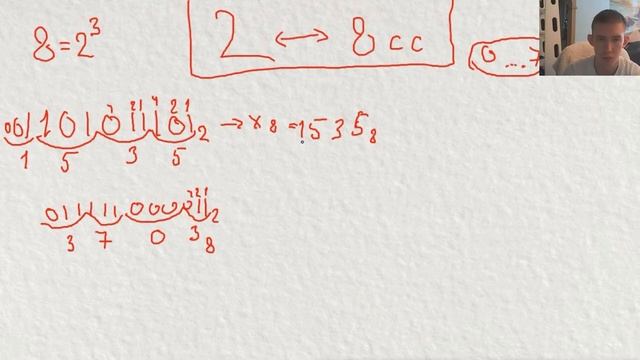 8 = 2³
2 ↔ 8 cc
0 ... 7
001101011101₂ → x₈ = 1535₈
1 5 3 5
011111000011₂
3 7 0 3₈